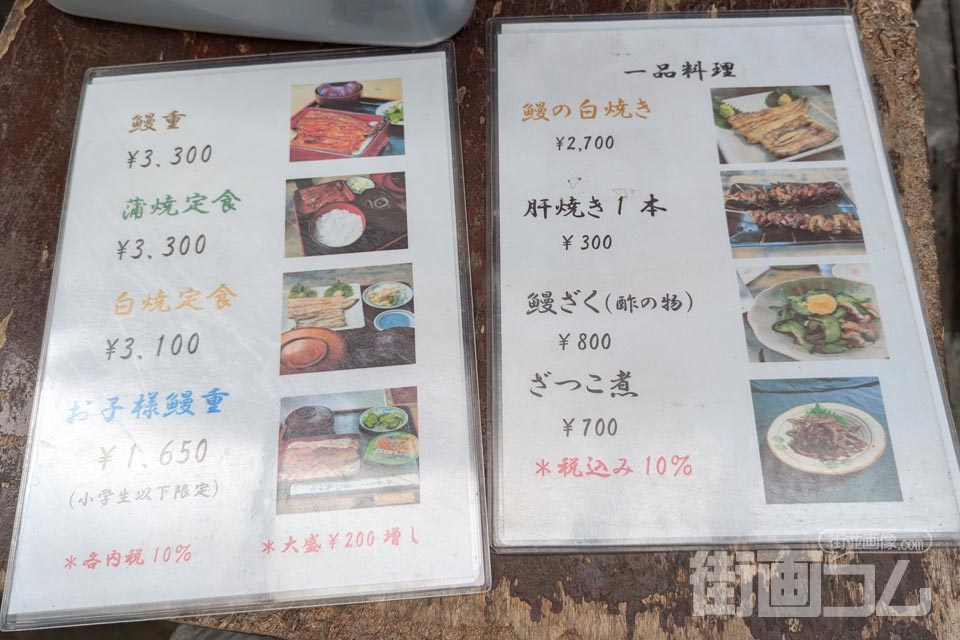 鰻重
¥3,300
蒲焼定食
¥3,300
白焼定食
¥3,100
お子様鰻重
¥1,650
(小学生以下限定)
*各内税10%
*大盛¥200増し
一品料理
鰻の白焼き
¥2,700
肝焼き1本
¥300
鰻ざく(酢の物)
¥800
ざつこ煮
¥700
*税込み10%
街並画像.com
街画コム